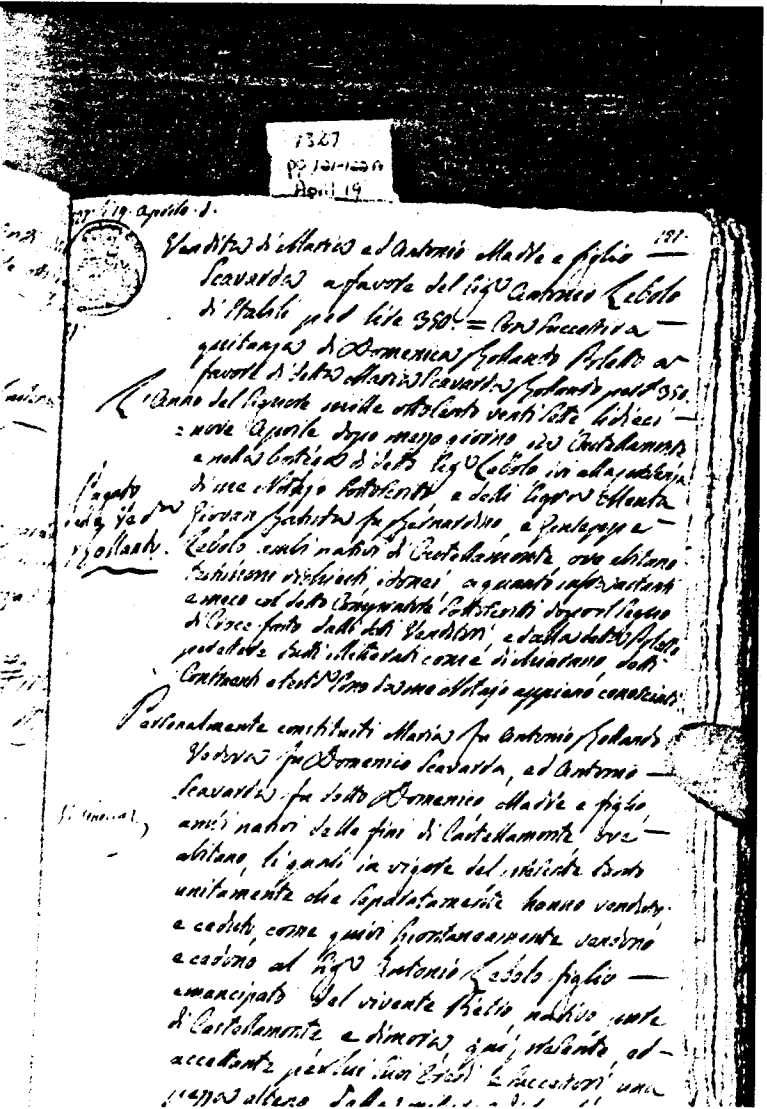 1827
pp 121-122
April 19
19. Aprile
121
Vendita di Maria ed Antonio Madre e figlio
Scavarda a favore del Sigr Antonio Lebolo
di Stabili per lire 350. = Con successiva
quitanza di Domenica Gollando Poletto a
favore di detta Maria Scavarda Gollando per 350.
L'Anno del Signore mille ottocento venti sette li dieci
nove Aprile dopo mezzo giorno in Castellamonte
e nella bottega di detto Sigr Lebolo in alla presenza
di me Notajo sottoscritto e delli Signori Menta
Giovan Batista fu Bernardino, e Giuseppe
Lebolo ambi nativi di Castellamonte ove abitano
testimoni richiesti idonei, a quanto infra astanti
e meco col detto Compratore sottoscritti dopo il segno
di Croce fatto dalli detti Venditori e dalla detta Poletto
per essere tutti illetterati come dichiarano, detti
Contraenti e testi sono da me Notajo appieno conosciuti.
Pagato
Ved
Gollando.
Personalmente constituiti Maria fu Antonio Gollando
Vedova fu Domenico Scavarda, ed Antonio
Scavarda fu detto Domenico Madre e figlio,
ambi nativi delle fini di Castellamonte ove
abitano, li quali in vigore del presente tanto
unitamente che separatamente hanno venduto,
e ceduto, come quivi spontaneamente vendono
e cedono al Sigr Antonio Lebolo figlio
emancipato del vivente Pietro nativo
di Castellamonte e dimora qui, presente, ed
accettante per lui suoi Eredi e successori una
pezza alteno dalla